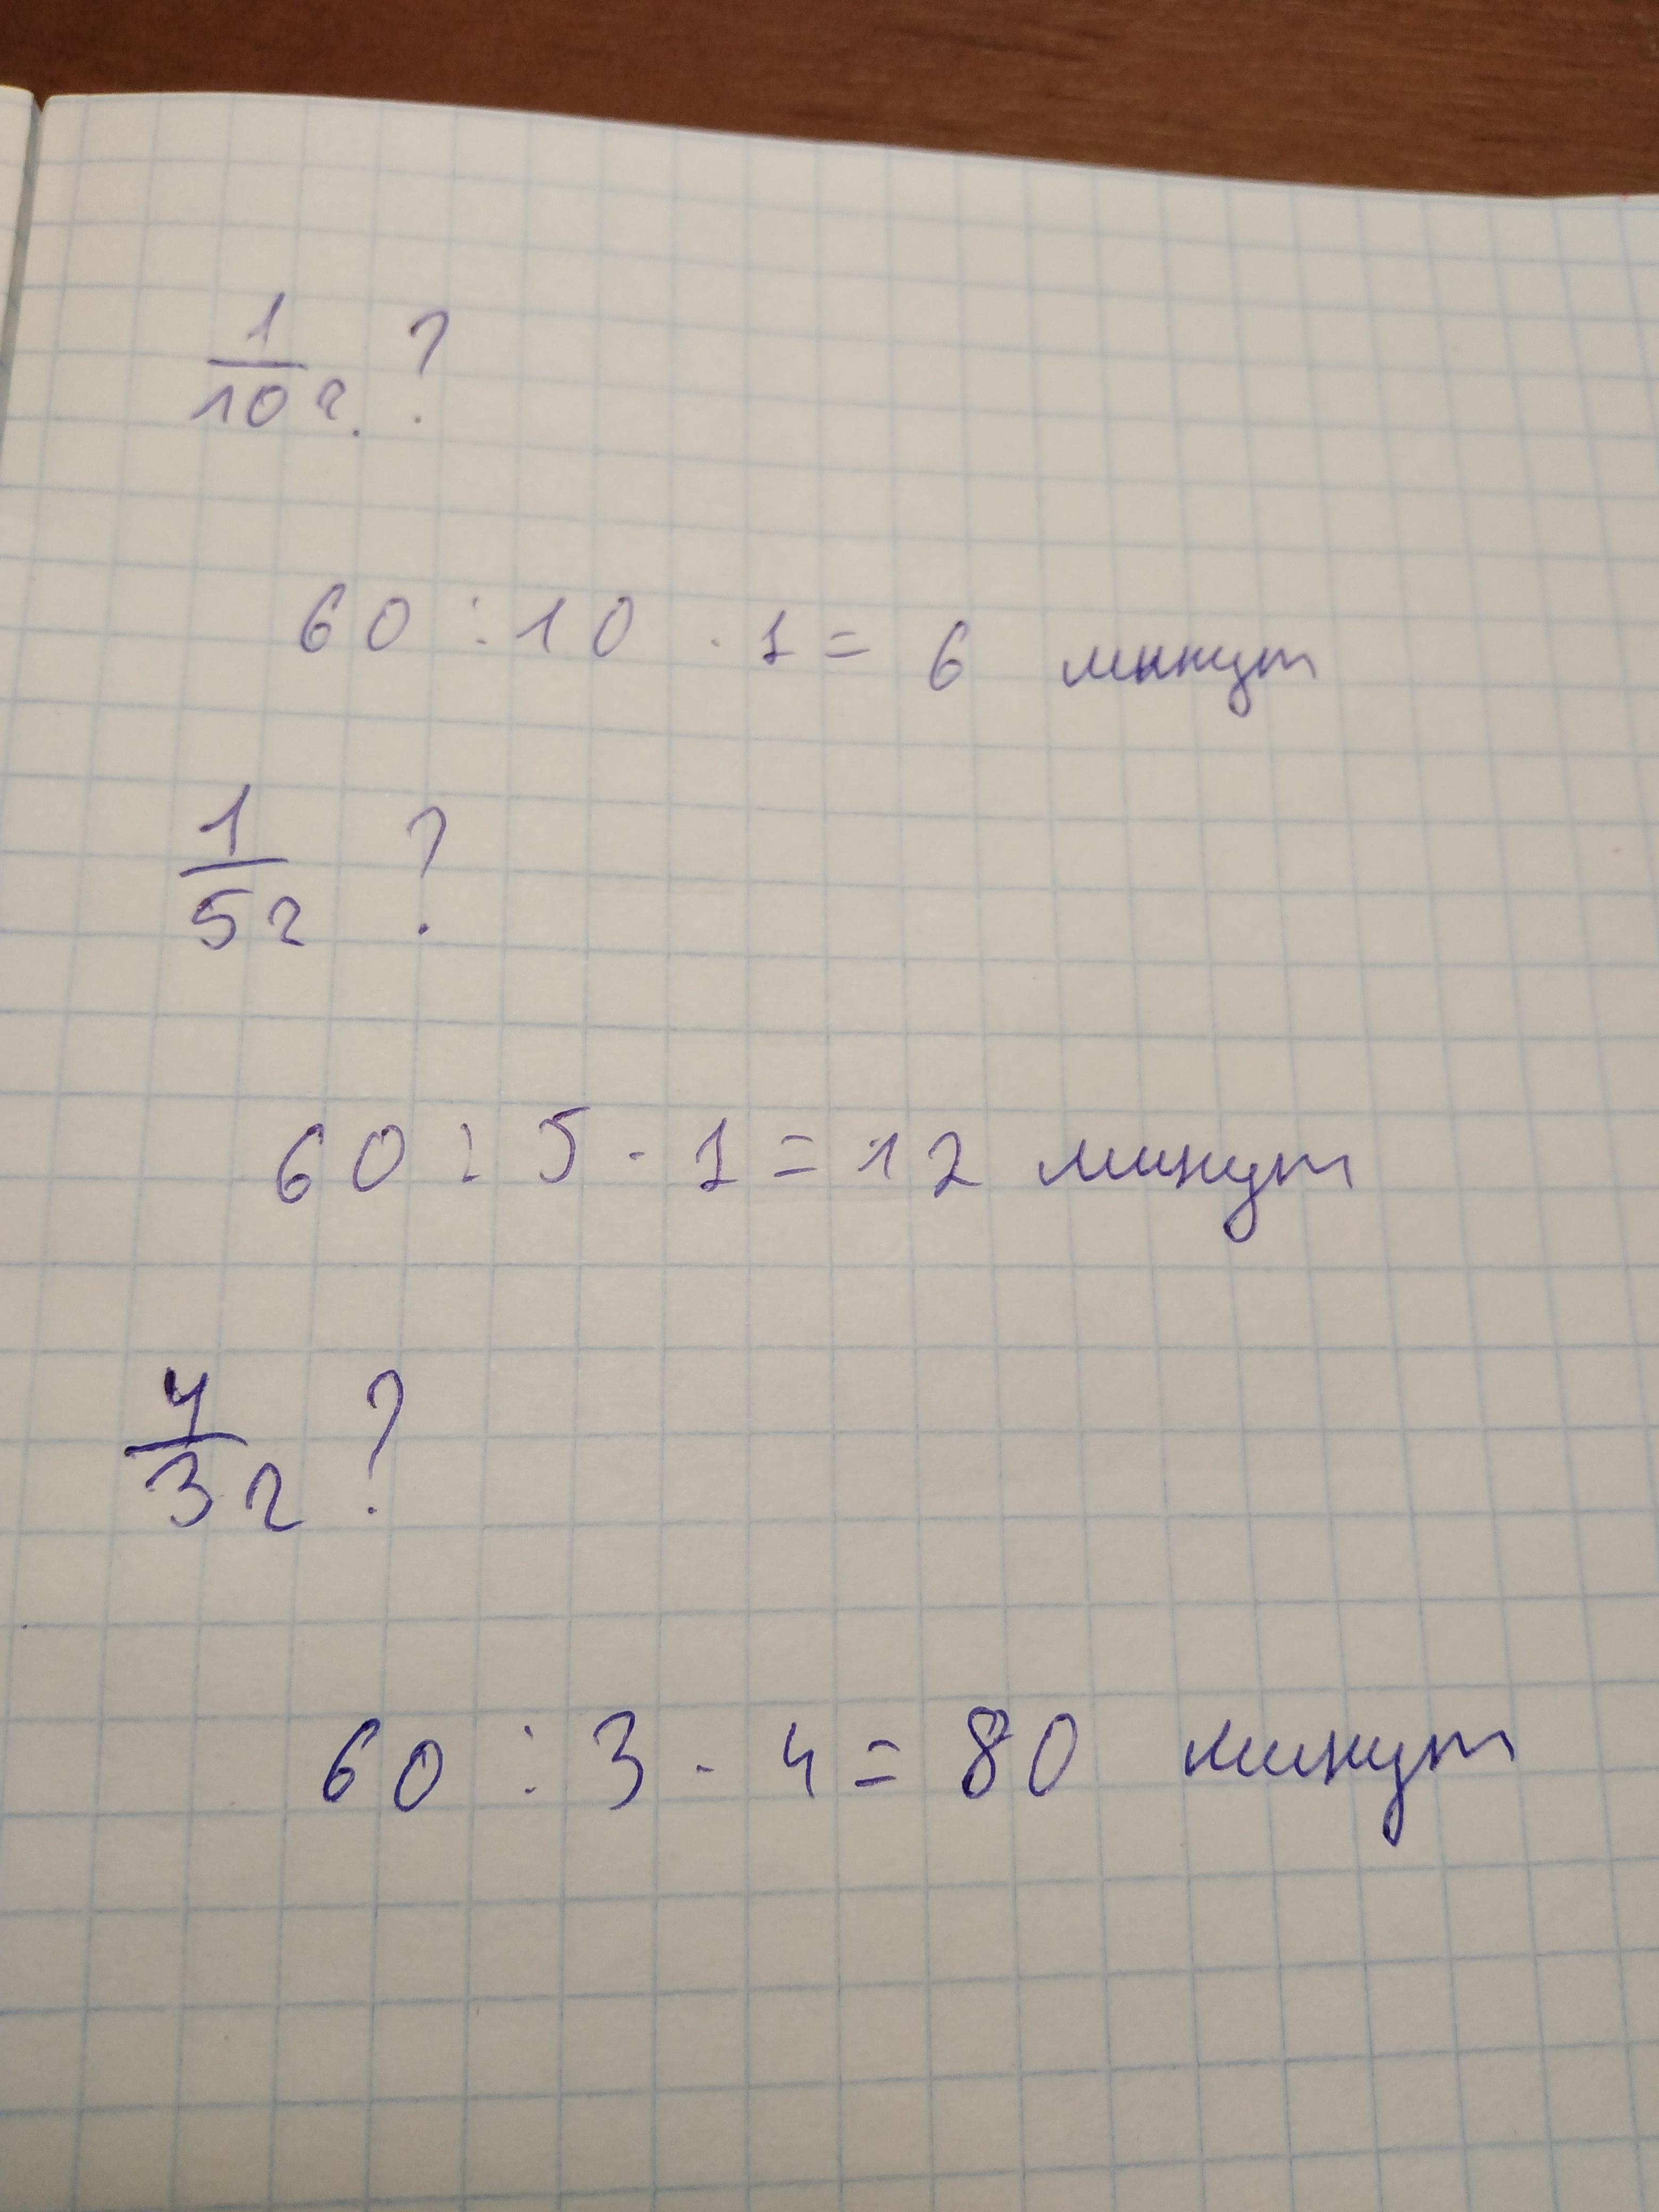 1/10 г. ?
60 : 10 · 1 = 6 минут
1/5 г ?
60 : 5 · 1 = 12 минут
4/3 г ?
60 : 3 · 4 = 80 минут